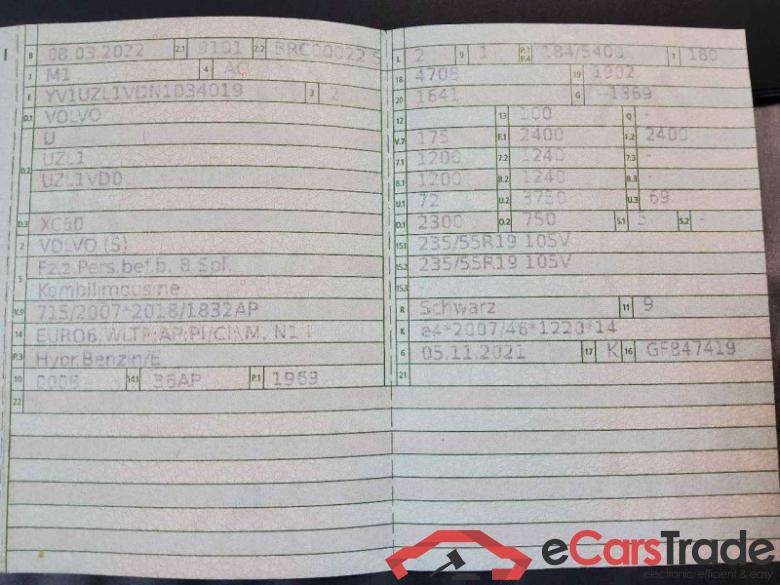 B 08.03.2022 2.1 9101 2.2 BRC00022 5
J M1 4 AC
E YV1UZL1VDN1034019 3 2
D.1 VOLVO
U
D.2 UZL1
UZL1VD0
D.3 XC60
2 VOLVO (S)
5 Fz.z.Pers.bef.b. 8 Spl.
Kombilimousine
V.9 715/2007*2018/1832AP
14 EURO6;WLTP;AP;PI/CI;M, N1 I
P.3 Hybr.Benzin/E
10 0008 14.1 36AP P.1 1969
22
L 2 9 1 P.2 P.4 184/5400 T 180
18 4708 19 1902
20 1641 G -1869
12 13 100 Q -
V.7 175 F.1 2400 F.2 2400
7.1 1200 7.2 1240 7.3 -
8.1 1200 8.2 1240 8.3 -
U.1 72 U.2 3750 U.3 69
O.1 2300 O.2 750 S.1 5 S.2 -
15.1 235/55R19 105V
15.2 235/55R19 105V
15.3
R Schwarz 11 9
K e4*2007/46*1220*14
6 05.11.2021 17 K 16 GF847419
21
eCarsTrade
electronic, efficient & easy